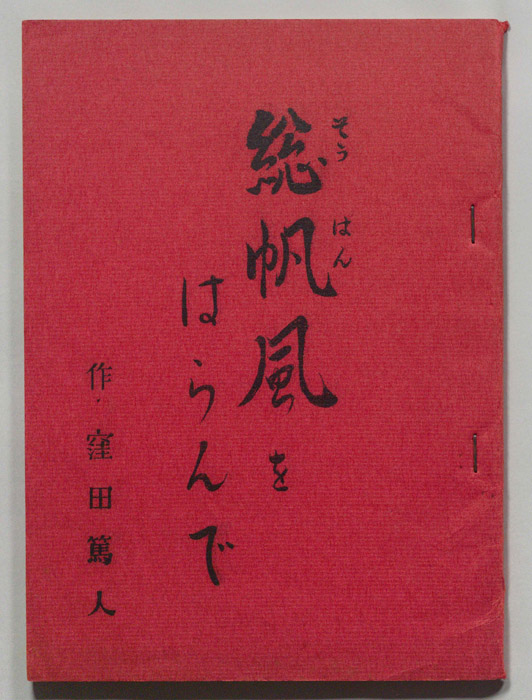 総帆風を
そうはん
はらんで
作・窪田篤人